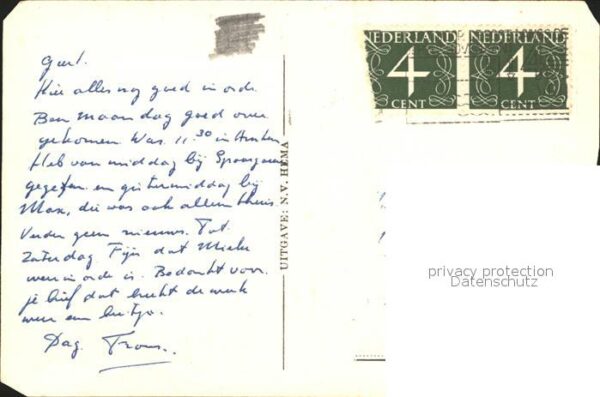 Geert.
Hier alles nog goed in orde.
Ben maandag goed over
gekomen Was 11.30 in
Heb vanmiddag bij
gegeten en gistermiddag bij
Max, die was ook alleen thuis.
Verder geen nieuws. Tot
Zaterdag. Fijn dat Mieke
weer in orde is. Bedankt voor
je brief dat breekt de week
weer een beetje.
Dag. Frans.
UITGAVE: N.V. HEMA
NEDERLAND NEDERLAND
4 4
CENT CENT
privacy protection
Datenschutz